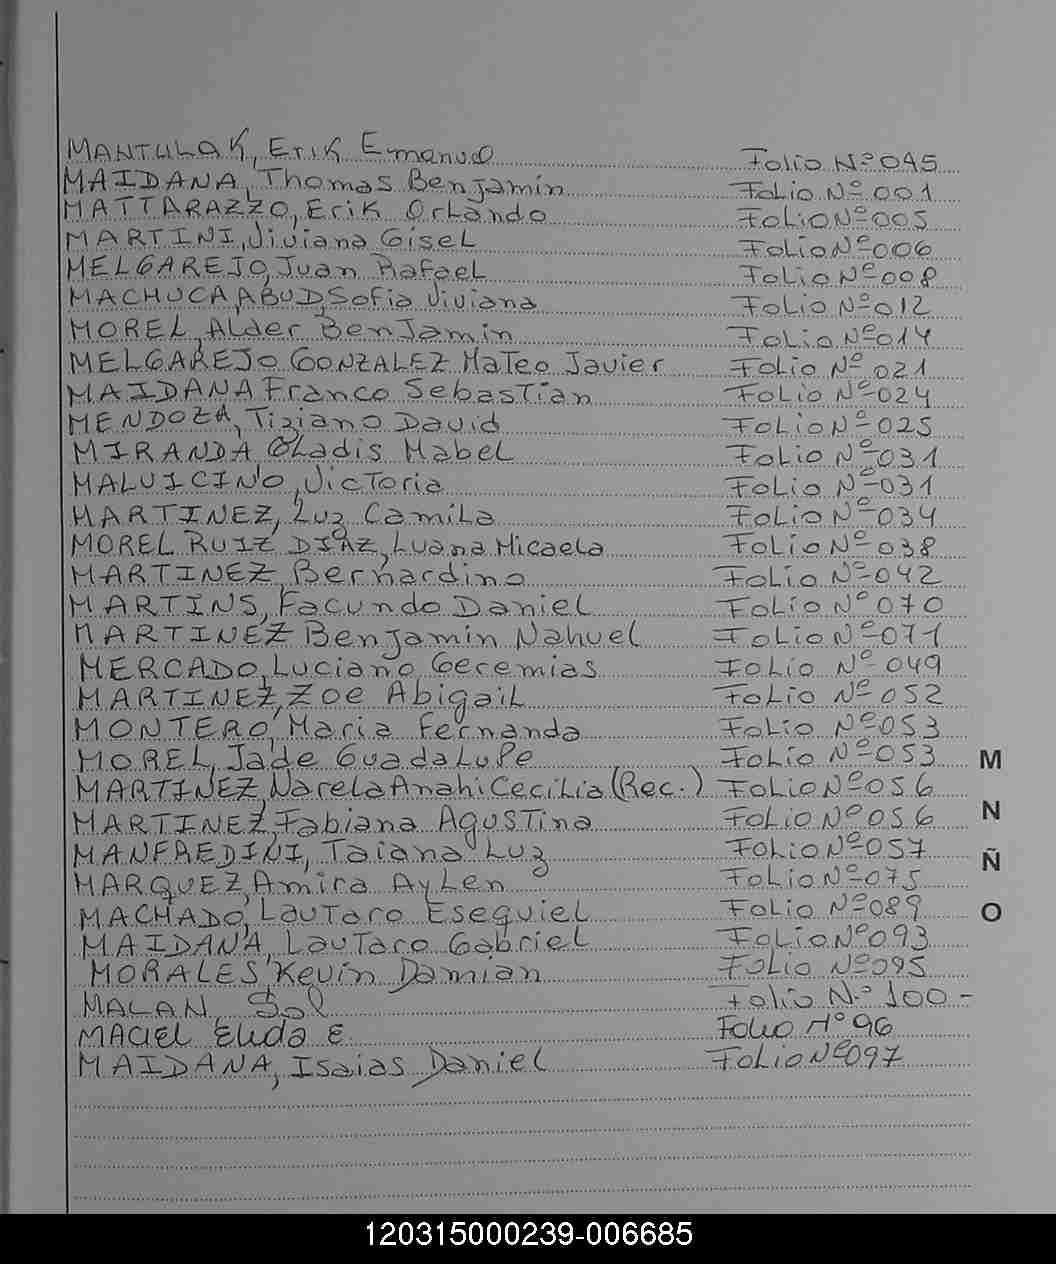 MANTULAK, Erik Emanuel Folio Nº 045
MAIDANA, Thomas Benjamin Folio Nº 001
MATTARAZZO, Erik Orlando Folio Nº 005
MARTINI, Viviana Gisel Folio Nº 006
MELGAREJO, Juan Rafael Folio Nº 008
MACHUCA, ABUD, Sofia Viviana Folio Nº 012
MOREL, Alder Benjamin Folio Nº 014
MELGAREJO GONZALEZ Mateo Javier Folio Nº 021
MAIDANA Franco Sebastian Folio Nº 024
MENDOZA, Tiziano David Folio Nº 025
MIRANDA Gladis Mabel Folio Nº 031
MALVICINO, Victoria Folio Nº 031
MARTINEZ, Luz Camila Folio Nº 034
MOREL RUIZ DIAZ, Luana Micaela Folio Nº 038
MARTINEZ, Bernardino Folio Nº 042
MARTINS, Facundo Daniel Folio Nº 070
MARTINEZ Benjamin Nahuel Folio Nº 071
MERCADO, Luciano Geremias Folio Nº 049
MARTINEZ, Zoe Abigail Folio Nº 052
MONTERO, Maria Fernanda Folio Nº 053
MOREL, Jade Guadalupe Folio Nº 053
MARTINEZ, Narela Anahi Cecilia (Rec.) Folio Nº 056
MARTINEZ, Fabiana Agustina Folio Nº 056
MANFREDINI, Taiana Luz Folio Nº 057
MARQUEZ, Amira Aylen Folio Nº 075
MACHADO, Lautaro Esequiel Folio Nº 089
MAIDANA, Lautaro Gabriel Folio Nº 093
MORALES, Kevin Damian Folio Nº 095
MALAN, Sol Folio N.º 100 -
MACIEL Elida E. Folio Nº 96
MAIDANA, Isaias Daniel Folio Nº 097
M
N
Ñ
O
120315000239-006685